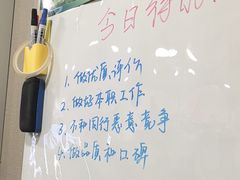 今日
1. 做优质评价
2. 做好本职工作
3. 不和同行恶意竞争
4. 做品质和口碑